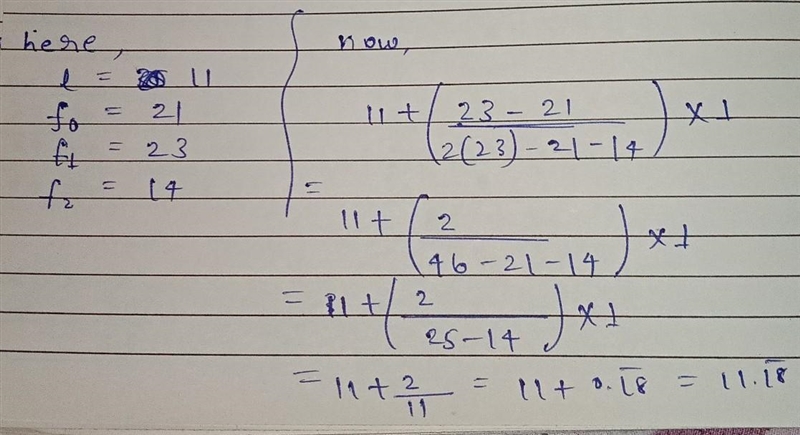 here,
l = 11
f₀ = 21
f₁ = 23
f₂ = 14
now,
11 + (23 - 21 / 2(23) - 21 - 14) × 1
= 11 + (2 / 46 - 21 - 14) × 1
= 11 + (2 / 25 - 14) × 1
= 11 + 2/11 = 11 + 0.1̅8̅ = 11.1̅8̅